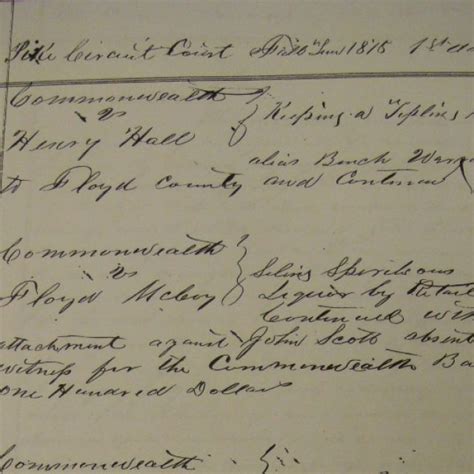 Pike Circuit Court Fall Term 1875 1st
Commonwealth
vs } Keeping a Tipling
Henry Hall
alias Bench Warr
to Floyd County and Continued
Commonwealth
vs } Seling Spiriteous
Floyd McCoy Liquor by Retail
Continued with
attachment against John Scott absent
witness for the Commonwealth Ba
one Hundred Dollars
Commonwealth